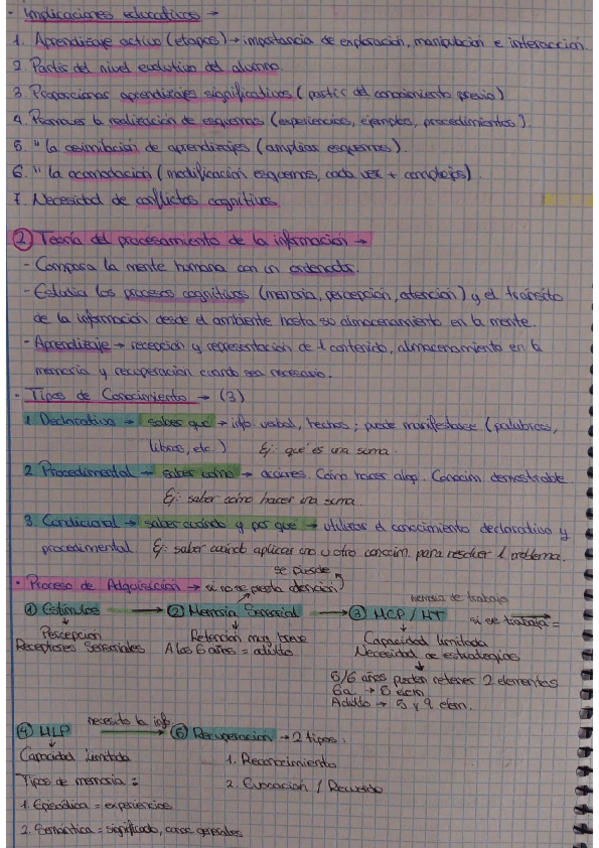 - Implicaciones educativas →
1. Aprendizaje activo (etapas) → importancia de exploración, manipulación e interacción.
2. Partir del nivel evolutivo del alumno.
3. Proporcionar aprendizajes significativos (partir del conocimiento previo)
4. Promover la realización de esquemas (experiencias, ejemplos, procedimientos).
5. " la asimilación de aprendizajes (ampliar esquemas).
6. " la acomodación (modificación esquemas, cada vez + complejos).
7. Necesidad de conflictos cognitivos.
2 Teoría del procesamiento de la información →
- Compara la mente humana con un ordenador.
- Estudia los procesos cognitivos (memoria, percepción, atención) y el tránsito
de la información desde el ambiente hasta su almacenamiento en la mente.
- Aprendizaje → recepción y representación de 1 contenido, almacenamiento en la
memoria y recuperación cuando sea necesario.
· Tipos de Conocimiento → (3)
1 Declarativo → saber qué → info. verbal, hechos; puede manifestarse (palabras,
libros, etc.) Ej: qué es una suma.
2 Procedimental → saber cómo → acciones. Cómo hacer algo. Conocim. demostrable.
Ej: saber cómo hacer una suma.
3. Condicional → saber cuándo y por qué → utilizar el conocimiento declarativo y
procedimental. Ej: saber cuándo aplicar uno u otro conocim. para resolver 1 problema.
se puede
· Proceso de Adquisición → si no se presta atención)
memoria de trabajo
① Estímulos → ② Memoria Sensorial → ③ MCP / MT si se trabaja =
Percepción Retención muy breve Capacidad limitada
Receptores Sensoriales A los 6 años = adulto Necesidad de estrategias
5/6 años pueden retener 2 elementos
6a → 5 elem
Adulto → 5 y 9 elem.
necesito la info.
④ MLP → ⑤ Recuperación → 2 tipos:
Capacidad Ilimitada 1. Reconocimiento
Tipos de memoria: 2. Evocación / Recuerdo
1. Episódica = experiencias
2. Semántica = significado, conoc generales